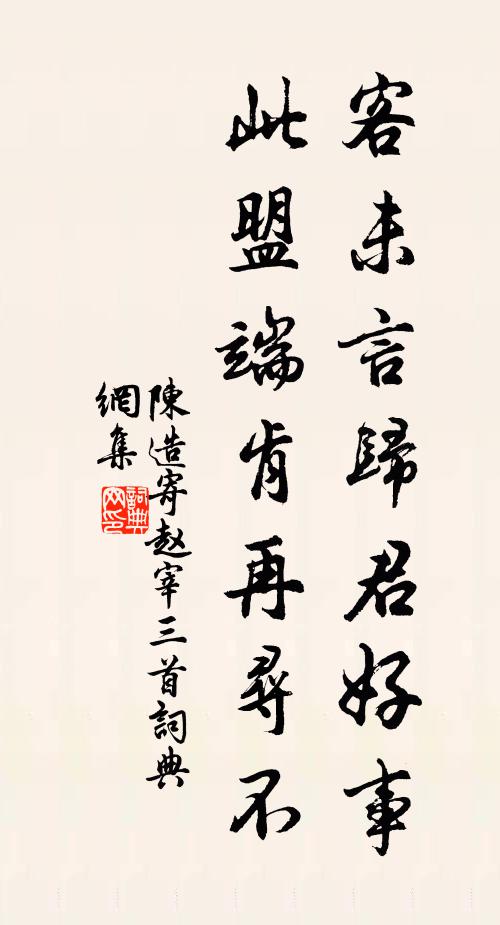 客未言歸君好事
此盟端肯再尋不
陳造寄赵宰三首詞典
網集
詞典
网印